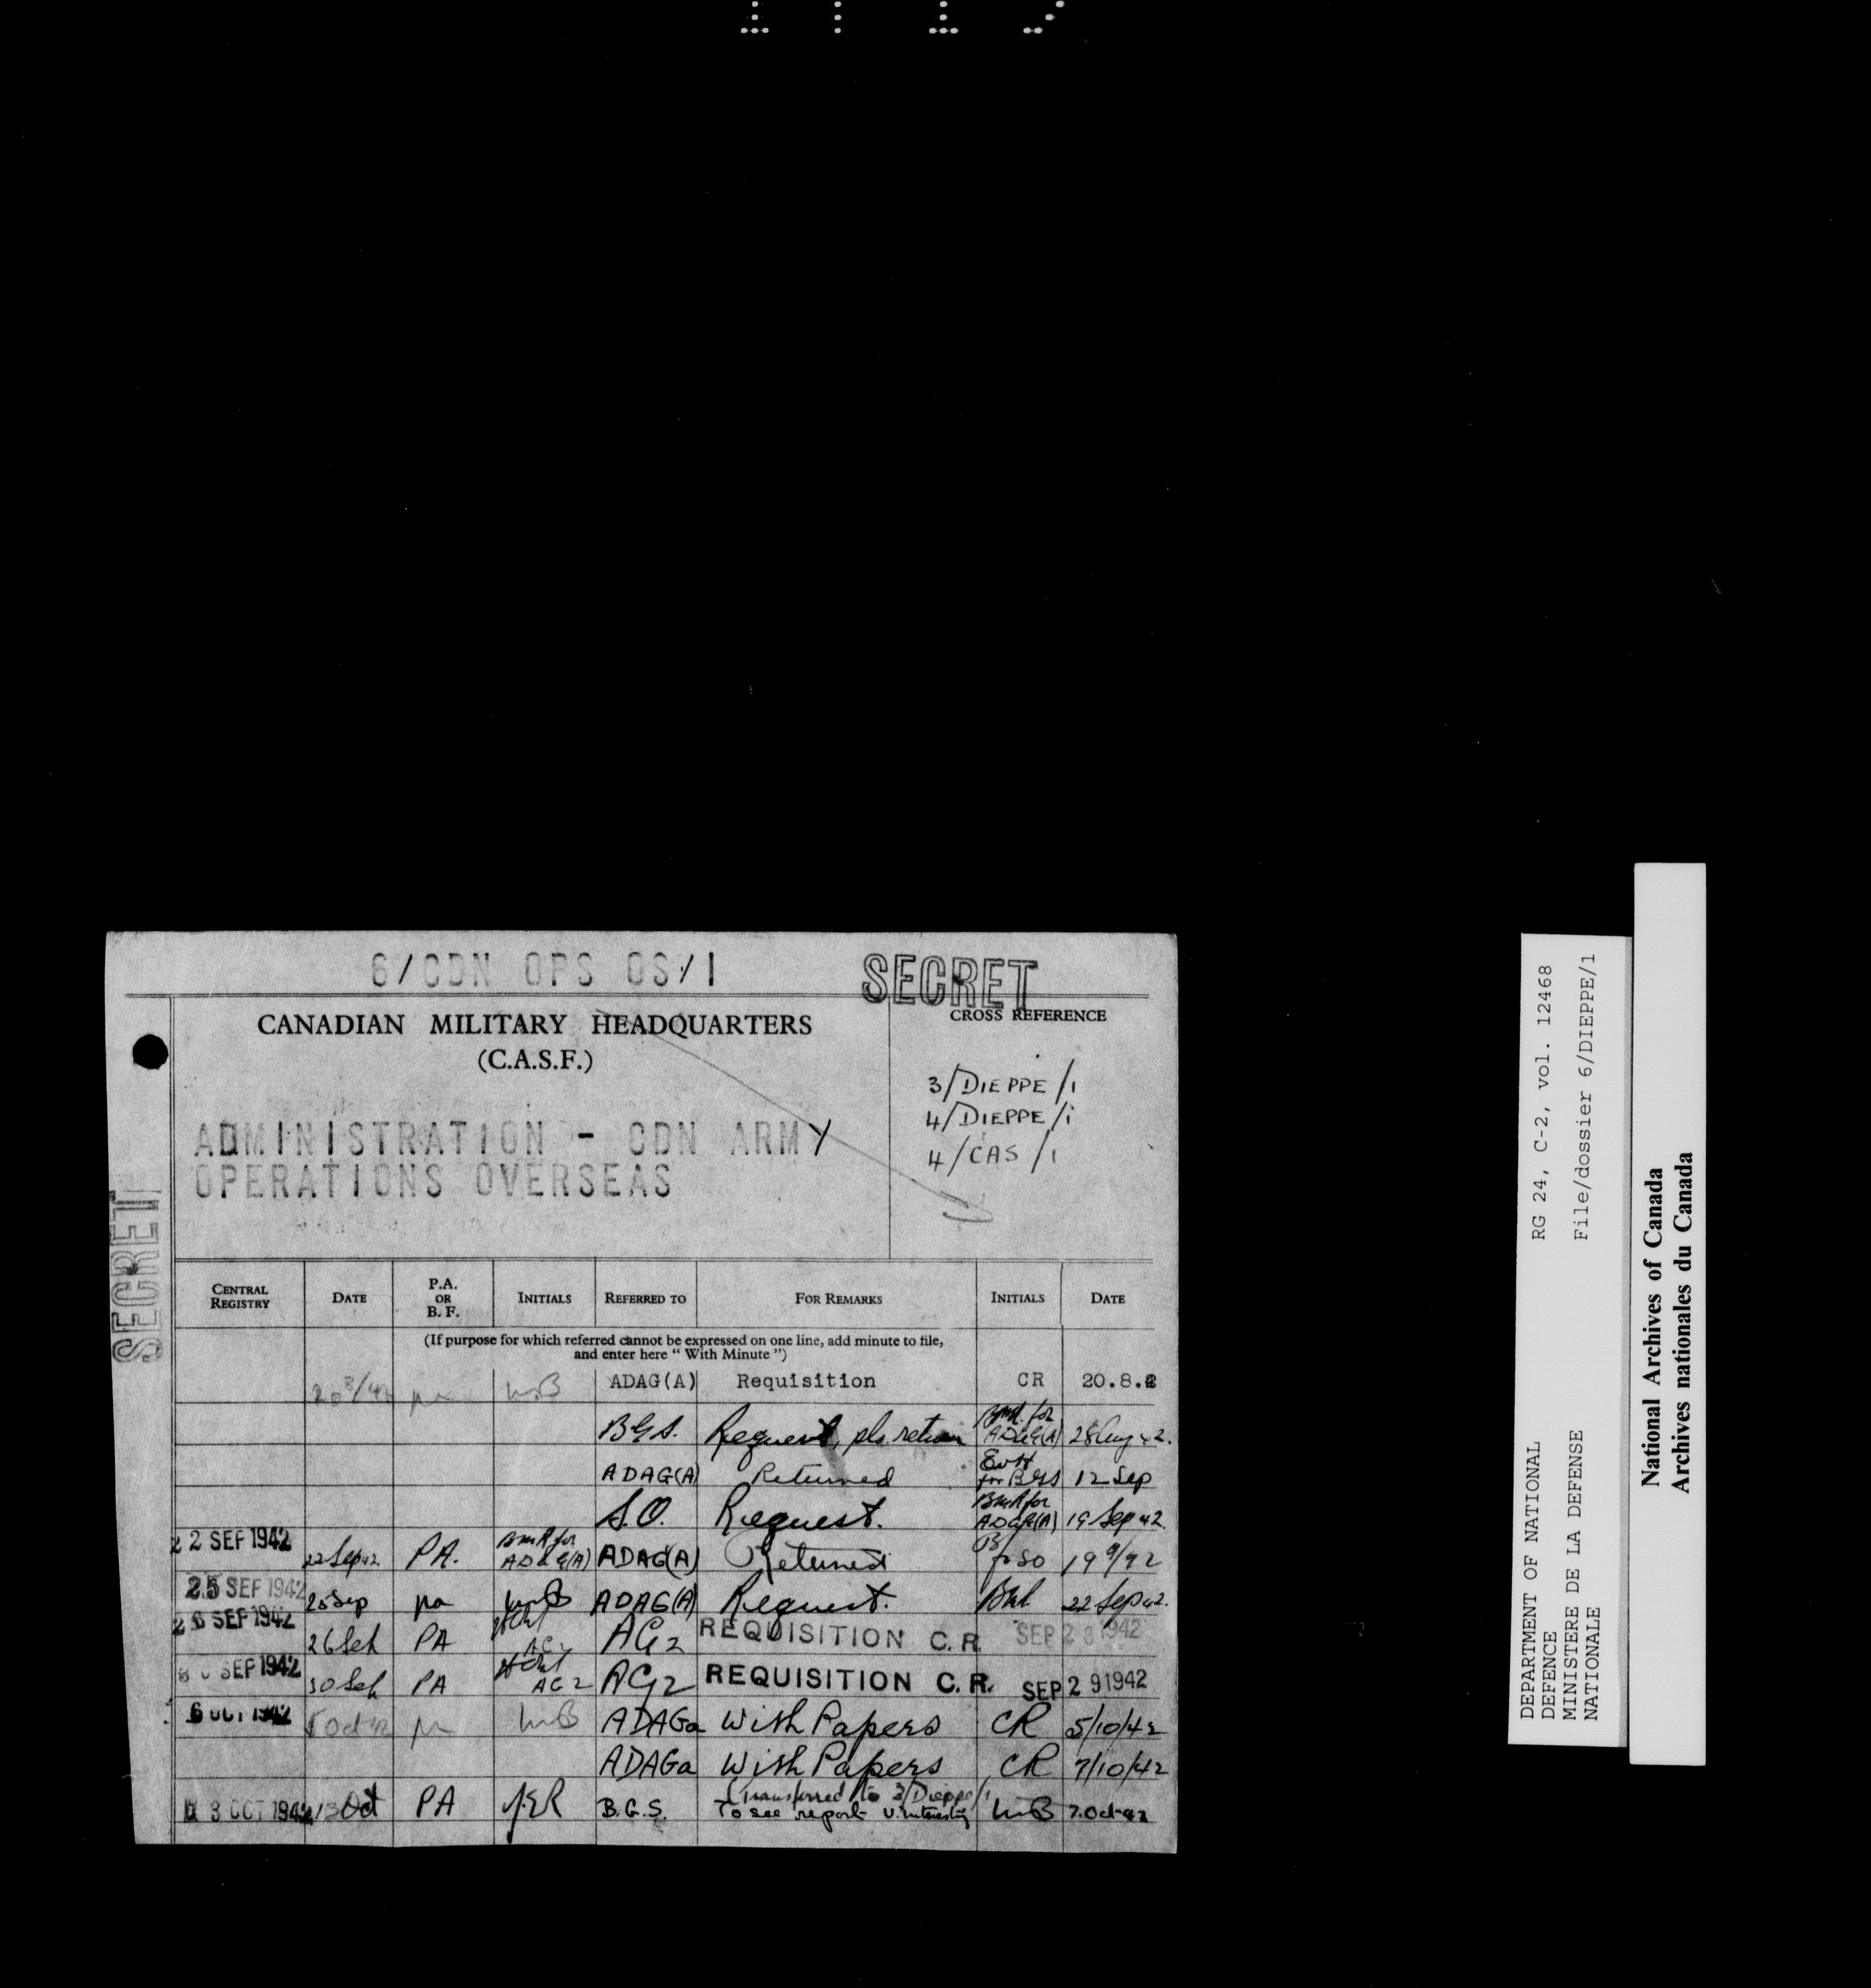 6/CDN OPS OS/1
SECRET
CANADIAN MILITARY HEADQUARTERS
(C.A.S.F.)
CROSS REFERENCE
3/DIEPPE/1
4/DIEPPE/1
4/CAS/1
ADMINISTRATION - CDN ARMY
OPERATIONS OVERSEAS
SECRET
CENTRAL REGISTRY DATE P.A. OR B.F. INITIALS REFERRED TO FOR REMARKS INITIALS DATE
(If purpose for which referred cannot be expressed on one line, add minute to file,
and enter here “ With Minute ”)
ADAG(A) Requisition CR 20.8.2
B.G.S. Request, pls. return for ADAG(A) 28 Aug 42.
ADAG(A) Returned for BGS 12 Sep
S.O. Request. for ADAG(A) 19 Sep 42.
22 SEP 1942 22 Sep 42 PA. for ADAG(A) ADAG(A) Returned for SO 19 9/42
25 SEP 1942 25 Sep pa ADAG(A) Request. 22 Sep 42.
26 SEP 1942 26 Sep PA AG2 AG2 REQUISITION C.R. SEP 28 1942
30 SEP 1942 30 Sep PA AG2 AG2 REQUISITION C.R. SEP 29 1942
6 OCT 1942 pa ADAGa With Papers CR 5/10/42
ADAGa With Papers CR 7/10/42
13 OCT 1942 13 Oct PA J.E.R B.G.S. (Transferred to 3/Dieppe/1
To see report v. interesting 7.Oct.42
DEPARTMENT OF NATIONAL
DEFENCE
MINISTERE DE LA DEFENSE
NATIONALE
RG 24, C-2, vol. 12468
File/dossier 6/DIEPPE/1
National Archives of Canada
Archives nationales du Canada